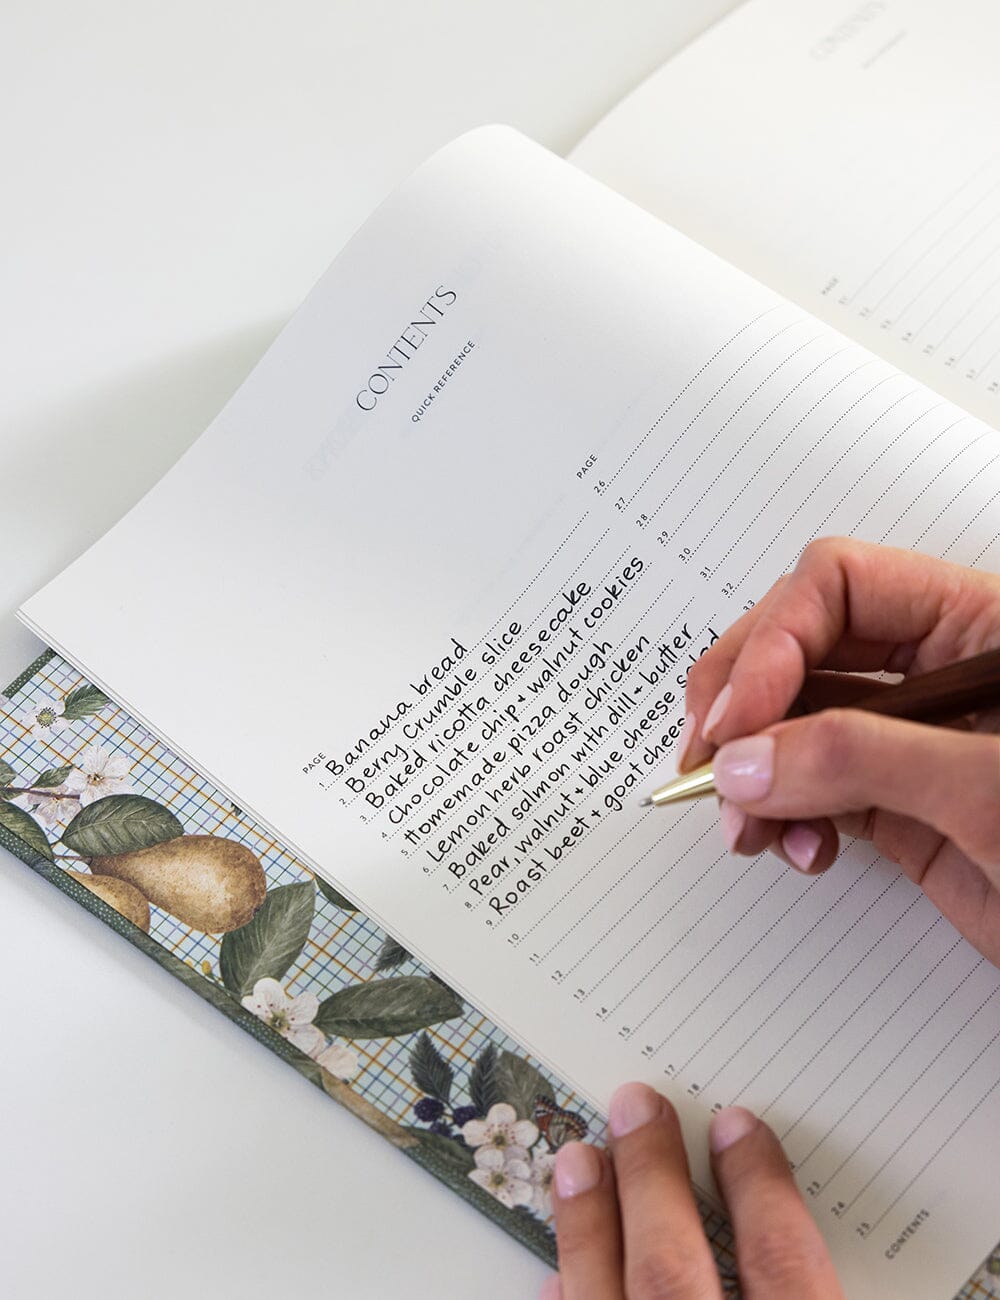 CONTENTS
QUICK REFERENCE
PAGE
1. Banana bread
2. Berry crumble slice
3. Baked ricotta cheesecake
4. Chocolate chip + walnut cookies
5. Homemade pizza dough
6. Lemon herb roast chicken
7. Baked salmon with dill + butter
8. Pear, walnut + blue cheese salad
9. Roast beet + goat chees
10
11
12
13
14
15
16
17
18
19
23
24
25
PAGE
26
27
28
29
30
31
32
33
CONTENTS
PAGE